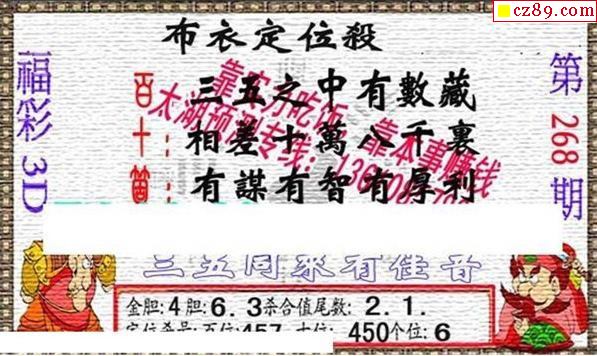 cz89.com
布衣定位殺
福彩3D
第268期
百: 三五之中有數藏
十: 相差十萬八千裏
有謀有智有厚利
靠实力吃饭 靠本事赚钱
太湖预测专线:
三五同來有佳音
金胆:4胆:6.3杀合值尾数:2.1.
定位杀号:百位457 十位:450个位:6